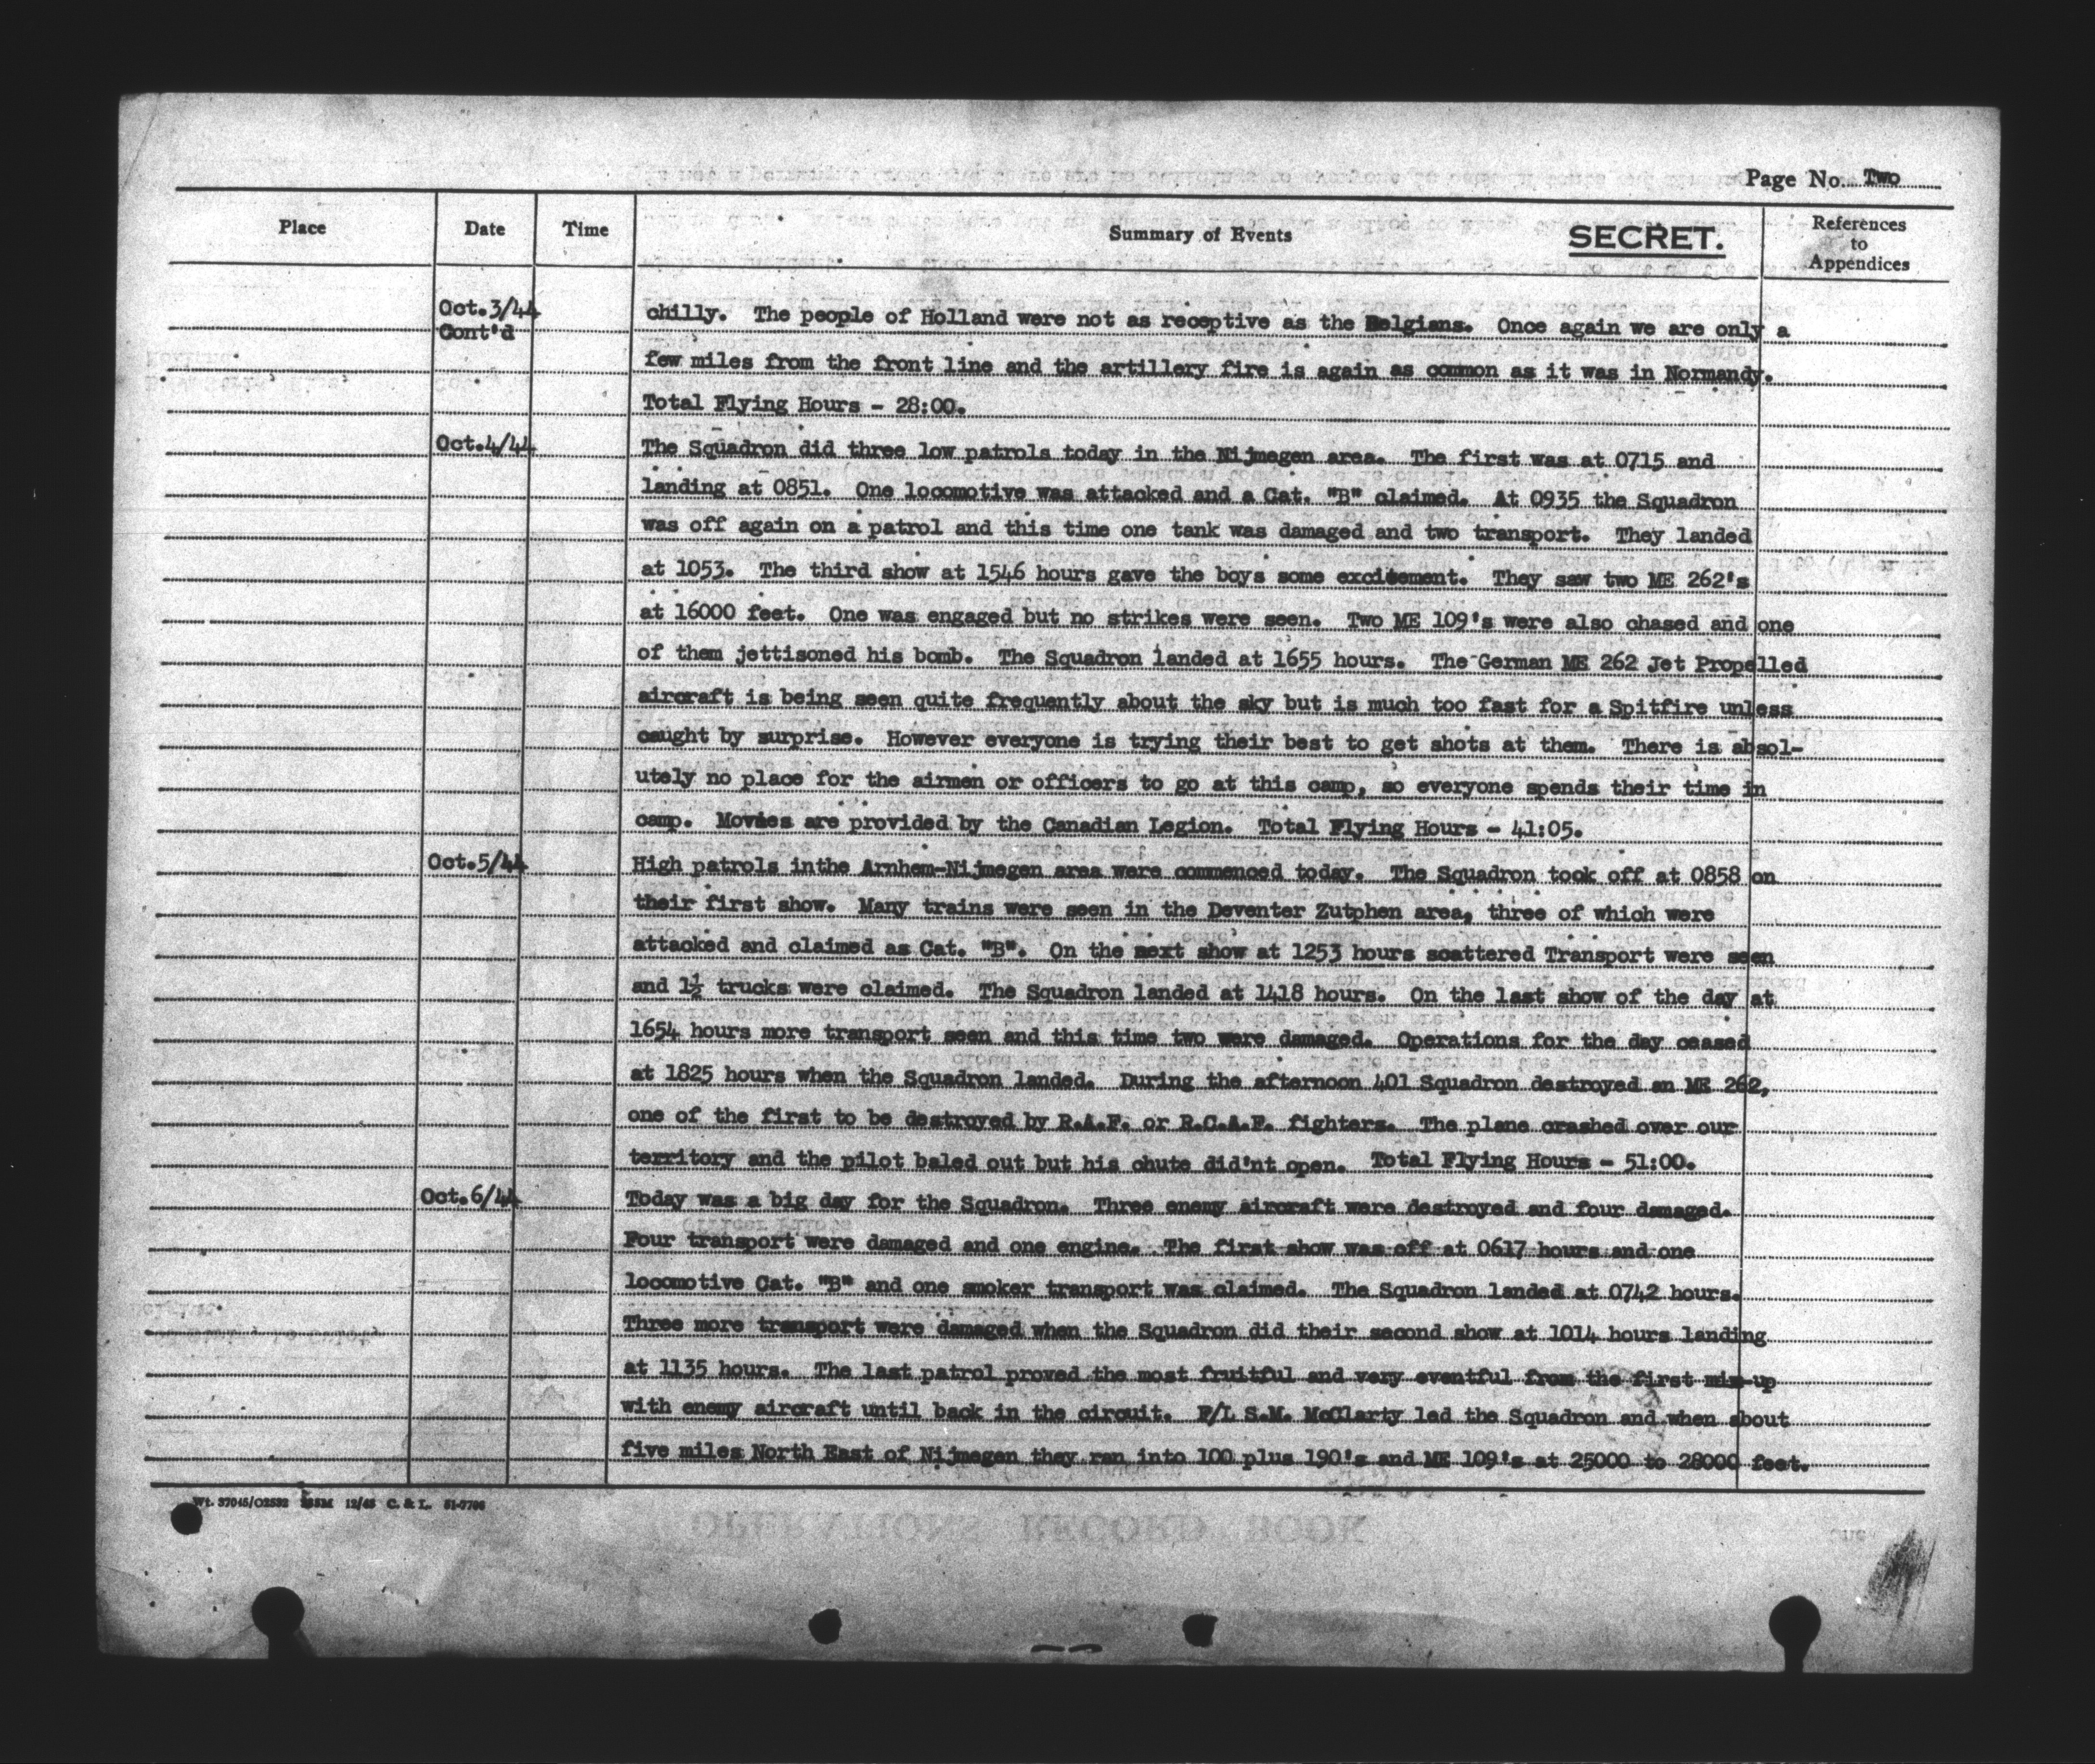 Page No. Two
Place Date Time Summary of Events SECRET. References to Appendices
Oct.3/44 chilly. The people of Holland were not as receptive as the Belgians. Once again we are only a
Cont'd
few miles from the front line and the artillery fire is again as common as it was in Normandy.
Total Flying Hours - 28:00.
Oct.4/44 The Squadron did three low patrols today in the Nijmegen area. The first was at 0715 and
landing at 0851. One locomotive was attacked and a Cat. "B" claimed. At 0935 the Squadron
was off again on a patrol and this time one tank was damaged and two transport. They landed
at 1053. The third show at 1546 hours gave the boys some excitement. They saw two ME 262's
at 16000 feet. One was engaged but no strikes were seen. Two ME 109's were also chased and one
of them jettisoned his bomb. The Squadron landed at 1655 hours. The German ME 262 Jet Propelled
aircraft is being seen quite frequently about the sky but is much too fast for a Spitfire unless
caught by surprise. However everyone is trying their best to get shots at them. There is absol-
utely no place for the airmen or officers to go at this camp, so everyone spends their time in
camp. Movies are provided by the Canadian Legion. Total Flying Hours - 41:05.
Oct.5/44 High patrols inthe Arnhem-Nijmegen area were commenced today. The Squadron took off at 0858 on
their first show. Many trains were seen in the Deventer Zutphen area, three of which were
attacked and claimed as Cat. "B". On the next show at 1253 hours scattered Transport were seen
and 1½ trucks were claimed. The Squadron landed at 1418 hours. On the last show of the day at
1654 hours more transport seen and this time two were damaged. Operations for the day ceased
at 1825 hours when the Squadron landed. During the afternoon 401 Squadron destroyed an ME 262,
one of the first to be destroyed by R.A.F. or R.C.A.F. fighters. The plane crashed over our
territory and the pilot baled out but his chute did'nt open. Total Flying Hours - 51:00.
Oct.6/44 Today was a big day for the Squadron. Three enemy aircraft were destroyed and four damaged.
Four transport were damaged and one engine. The first show was off at 0617 hours and one
locomotive Cat. "B" and one smoker transport was claimed. The Squadron landed at 0742 hours.
Three more transport were damaged when the Squadron did their second show at 1014 hours landing
at 1135 hours. The last patrol proved the most fruitful and very eventful from the first mix-up
with enemy aircraft until back in the circuit. F/L S.M. McClarty led the Squadron and when about
five miles North East of Nijmegen they ran into 100 plus 190's and ME 109's at 25000 to 28000 feet.
Wt. 37045/02532 12/43 C. & L. 51-7706
OPERATIONS RECORD BOOK